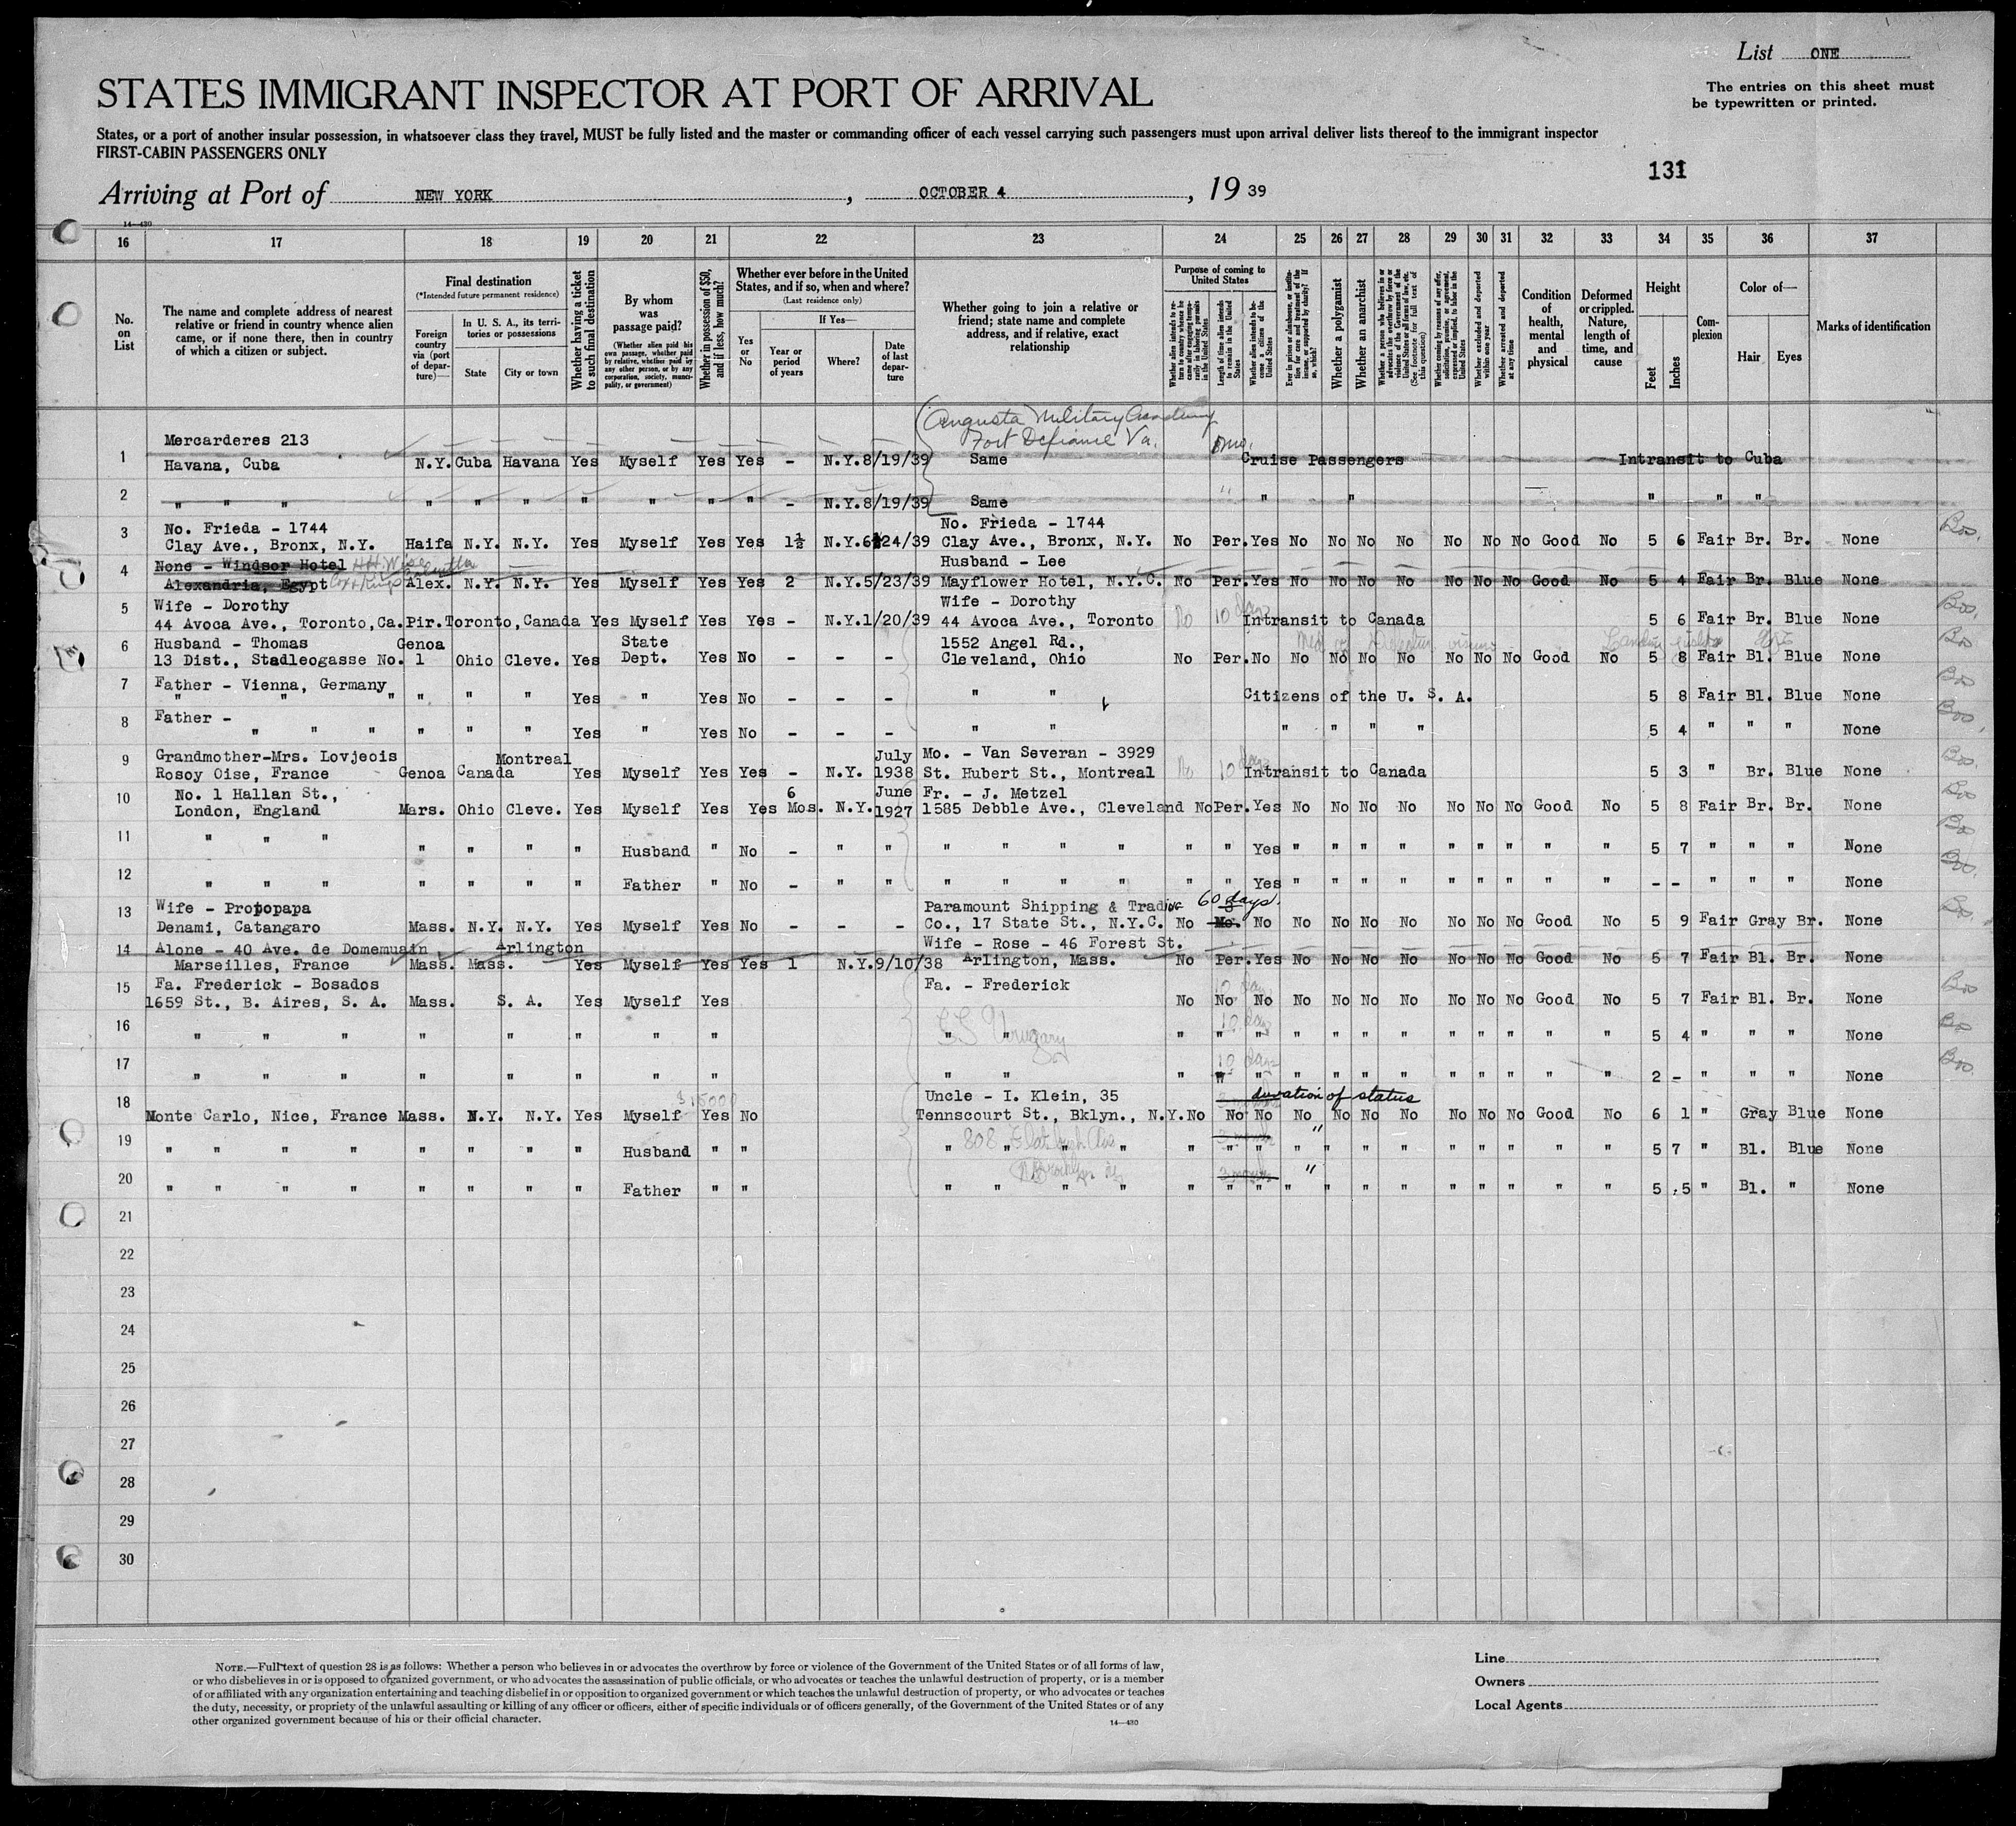 List ONE
STATES IMMIGRANT INSPECTOR AT PORT OF ARRIVAL
The entries on this sheet must
be typewritten or printed.
States, or a port of another insular possession, in whatsoever class they travel, MUST be fully listed and the master or commanding officer of each vessel carrying such passengers must upon arrival deliver lists thereof to the immigrant inspector
FIRST-CABIN PASSENGERS ONLY
131
Arriving at Port of NEW YORK, OCTOBER 4, 19 39
14—430
16 17 18 19 20 21 22 23 24 25 26 27 28 29 30 31 32 33 34 35 36 37
No. on List
The name and complete address of nearest relative or friend in country whence alien came, or if none there, then in country of which a citizen or subject.
Final destination
(*Intended future permanent residence)
Foreign country via (port of departure)—
In U. S. A., its territories or possessions
State
City or town
Whether having a ticket to such final destination
By whom was passage paid?
(Whether alien paid his own passage, whether paid by relative, whether paid by any other person, or by any corporation, society, municipality, or government)
Whether in possession of $50, and if less, how much?
Whether ever before in the United States, and if so, when and where?
(Last residence only)
If Yes—
Yes or No
Year or period of years
Where?
Date of last departure
Whether going to join a relative or friend; state name and complete address, and if relative, exact relationship
Purpose of coming to United States
Length of time alien intends to remain in the United States
Whether alien intends to become a citizen of the United States
Whether a polygamist
Whether an anarchist
Whether excluded and deported within one year
Whether arrested and deported at any time
Condition of health, mental and physical
Deformed or crippled. Nature, length of time, and cause
Height
Feet
Inches
Complexion
Color of—
Hair
Eyes
Marks of identification
Augusta Military Academy
Fort Defiance Va.
Mercarderes 213
1 Havana, Cuba N.Y. Cuba Havana Yes Myself Yes Yes - N.Y. 8/19/39 Same Cruise Passengers Intransit to Cuba
2 " " " " " " " " " " - N.Y. 8/19/39 Same " " " " "
3 No. Frieda - 1744 No. Frieda - 1744
Clay Ave., Bronx, N.Y. Haifa N.Y. N.Y. Yes Myself Yes Yes 1½ N.Y. 24/39 Clay Ave., Bronx, N.Y. No Per. Yes No No No No No No No Good No 5 6 Fair Br. Br. None
4 None - Windsor Hotel Husband - Lee
Alexandria, Egypt Alex. N.Y. N.Y. Yes Myself Yes Yes 2 N.Y. 5/23/39 Mayflower Hotel, N.Y.C. No Per. Yes No No No No No No No Good No 5 4 Fair Br. Blue None
5 Wife - Dorothy Wife - Dorothy
44 Avoca Ave., Toronto, Ca. Pir. Toronto, Canada Yes Myself Yes Yes - N.Y. 1/20/39 44 Avoca Ave., Toronto No 10 days Intransit to Canada 5 6 Fair Br. Blue None
6 Husband - Thomas Genoa State 1552 Angel Rd.,
13 Dist., Stadleogasse No. 1 Ohio Cleve. Yes Dept. Yes No - - - Cleveland, Ohio No Per. No No No No No No No No Good No 5 8 Fair Bl. Blue None
7 Father - Vienna, Germany
" " " " " " Yes " Yes No - - - " " Citizens of the U. S. A. 5 8 Fair Bl. Blue None
8 Father -
" " " " " " Yes " Yes No - - - " " " " " " 5 4 " " " None
9 Grandmother-Mrs. Lovjeois Montreal July Mo. - Van Severan - 3929
Rosoy Oise, France Genoa Canada Yes Myself Yes Yes - N.Y. 1938 St. Hubert St., Montreal No 10 days Intransit to Canada 5 3 " Br. Blue None
10 No. 1 Hallan St., 6 June Fr. - J. Metzel
London, England Mars. Ohio Cleve. Yes Myself Yes Yes Mos. N.Y. 1927 1585 Debble Ave., Cleveland No Per. Yes No No No No No No No Good No 5 8 Fair Br. Br. None
11 " " " " " " " Husband " No - " " " " " " " " Yes " " " " " " " " " 5 7 " " " None
12 " " " " " " " Father " No - " " " " " " " " Yes " " " " " " " " " - - " " " None
13 Wife - Protopapa Paramount Shipping & Trading 60 days.
Denami, Catangaro Mass. N.Y. N.Y. Yes Myself Yes No - - - Co., 17 State St., N.Y.C. No No No No No No No No No Good No 5 9 Fair Gray Br. None
14 Alone - 40 Ave. de Domemusin Arlington Wife - Rose - 46 Forest St.
Marseilles, France Mass. Mass. Yes Myself Yes Yes 1 N.Y. 9/10/38 Arlington, Mass. No Per. Yes No No No No No No No Good No 5 7 Fair Bl. Br. None
15 Fa. Frederick - Bosados Fa. - Frederick 10 days
1659 St., B. Aires, S. A. Mass. S. A. Yes Myself Yes No No No No No No No No No No Good No 5 7 Fair Bl. Br. None
16 " " " " " " " " SS Uruguay " " 10 days " " " " " " " " " " " " 5 4 " " " None
17 " " " " " " " " " " 10 days " " " " " " " " " " " " 2 - " " " None
18 Uncle - I. Klein, 35 duration of status
Monte Carlo, Nice, France Mass. N.Y. N.Y. Yes Myself Yes No Tennscourt St., Bklyn., N.Y. No No No No No No No No No No Good No 6 1 " Gray Blue None
19 " " " " " " " " Husband " " 808 " " " " " " " " " " " " " " " " " 5 7 " Bl. Blue None
20 " " " " " " " " Father " " " " " " " " " " " " " " " " " " " 5 5 " Bl. " None
21
22
23
24
25
26
27
28
29
30
NOTE.—Full text of question 28 is as follows: Whether a person who believes in or advocates the overthrow by force or violence of the Government of the United States or of all forms of law,
or who disbelieves in or is opposed to organized government, or who advocates the assassination of public officials, or who advocates or teaches the unlawful destruction of property, or is a member
of or affiliated with any organization entertaining and teaching disbelief in or opposition to organized government or which teaches the unlawful destruction of property, or who advocates or teaches
the duty, necessity, or propriety of the unlawful assaulting or killing of any officer or officers, either of specific individuals or of officers generally, of the Government of the United States or of any
other organized government because of his or their official character.
14—430
Line
Owners
Local Agents